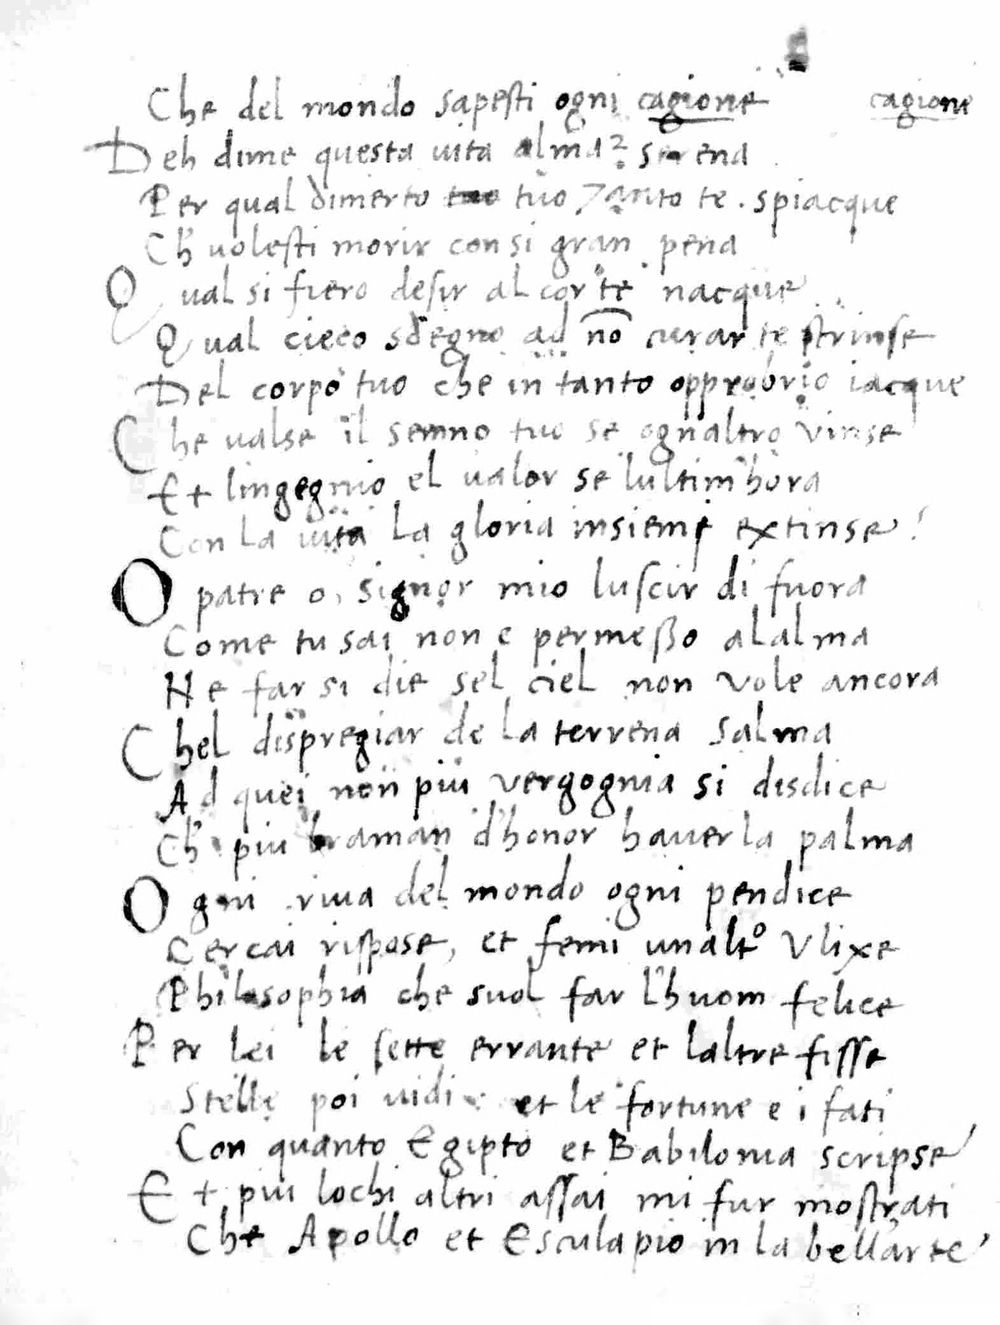 Che del mondo sapesti ogni cagione cagione
Deh dime questa uita alma? serena
Per qual dimerto tuo tanto te . spiacque
Ch uolesti morir con si gran pena
Qual si fiero desir al cor te nacque
Qual cieco sdegno ad nō curar te strinse
Del corpo tuo che in tanto opprobrio iacque
Che ualse il senno tuo se ognaltro vinse
Et lingegnio el ualor se lultim hora
Con la uita la gloria insieme extinse!
O patre o, signor mio luscir di fuora
Come tu sai non e permesso alalma
Ne far si die sel ciel non vole ancora
Chel dispregiar de la terrena salma
Ad quei non piu vergognia si disdice
Ch piu braman d'honor hauer la palma
Ogni riua del mondo ogni pendice
Cercai rispose, et femi unalto Vlixe
Philosophia che suol far l'huom felice
Per lei le sette errante et laltre fisse
Stelle poi uidi et le fortune e i fati
Con quanto Egipto et Babilonia scripse
Et piu lochi altri assai mi fur mostrati
Che Apollo et Esculapio in la bell'arte